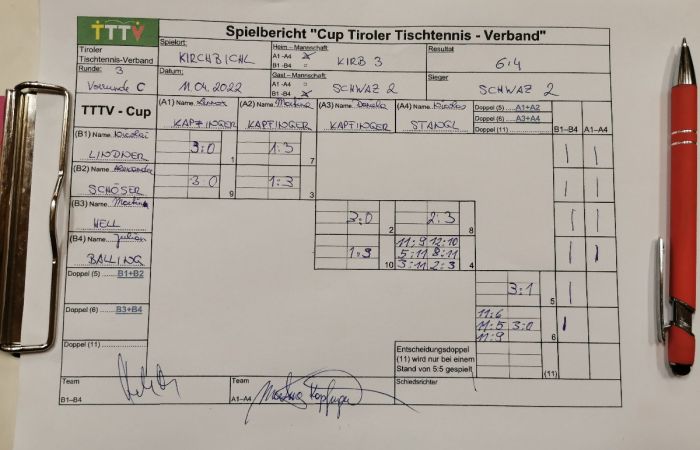 TTTV
Spielbericht "Cup Tiroler Tischtennis - Verband"
Tiroler
Tischtennis-Verband
Spielort:
KIRCHBICHL
Heim - Mannschaft
A1-A4
B1-B4
KIRB 3
Resultat
6:4
Runde: 3
Vorrunde C
Datum:
11.04.2022
Gast - Mannschaft
A1-A4
B1-B4
SCHWAZ 2
Sieger
SCHWAZ 2
TTTV - Cup
(A1) Name
KAPFINGER
(A2) Name Martina
KAPFINGER
(A3) Name
KAPFINGER
(A4) Name Nicolas
STANGL
Doppel (5) A1+A2
Doppel (6) A3+A4
Doppel (11)
B1-B4 A1-A4
(B1) Name Nicolai
LINDNER
3:0 1
1:3 7
(B2) Name Alexander
SCHÖSER
3:0 9
1:3 3
(B3) Name Martin
HELL
3:0 2
2:3 8
(B4) Name Julian
BALLING
1:3 10
11:9 12:10
5:11 8:11
3:11 2:3 4
Doppel (5) B1+B2
3:1 5
Doppel (6) B3+B4
11:6
11:5 3:0
11:9 6
Doppel (11)
Entscheidungsdoppel
(11) wird nur bei einem
Stand von 5:5 gespielt
(11)
Team
B1-B4
Team
A1-A4
Martina Kapfinger
Schiedsrichter